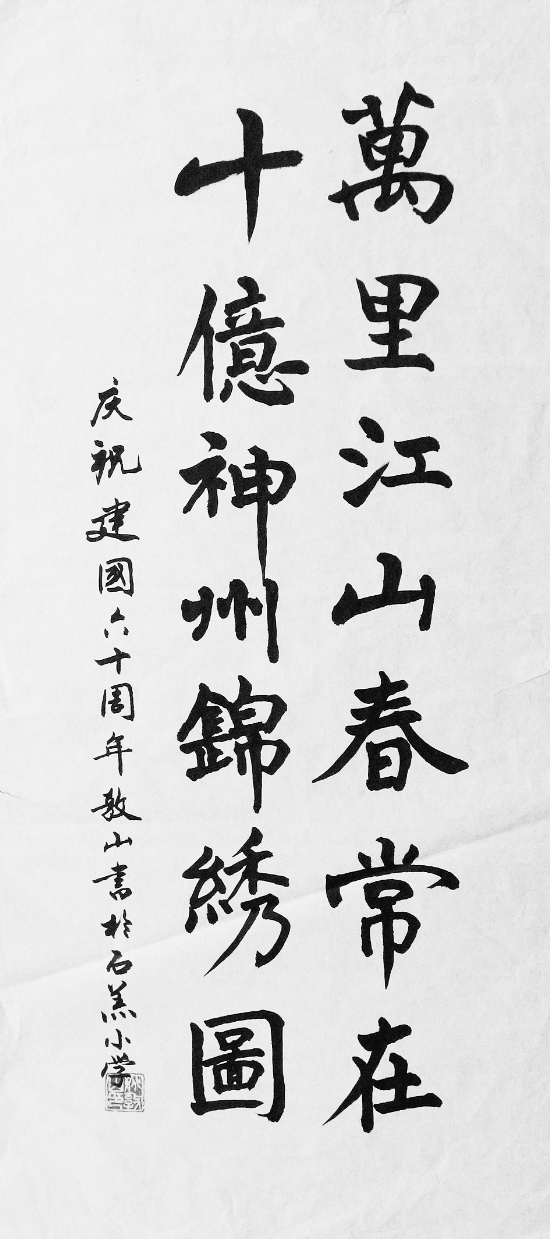 萬里江山春常在
十億神州錦綉圖
庆祝建國六十周年敦山書於石羔小学